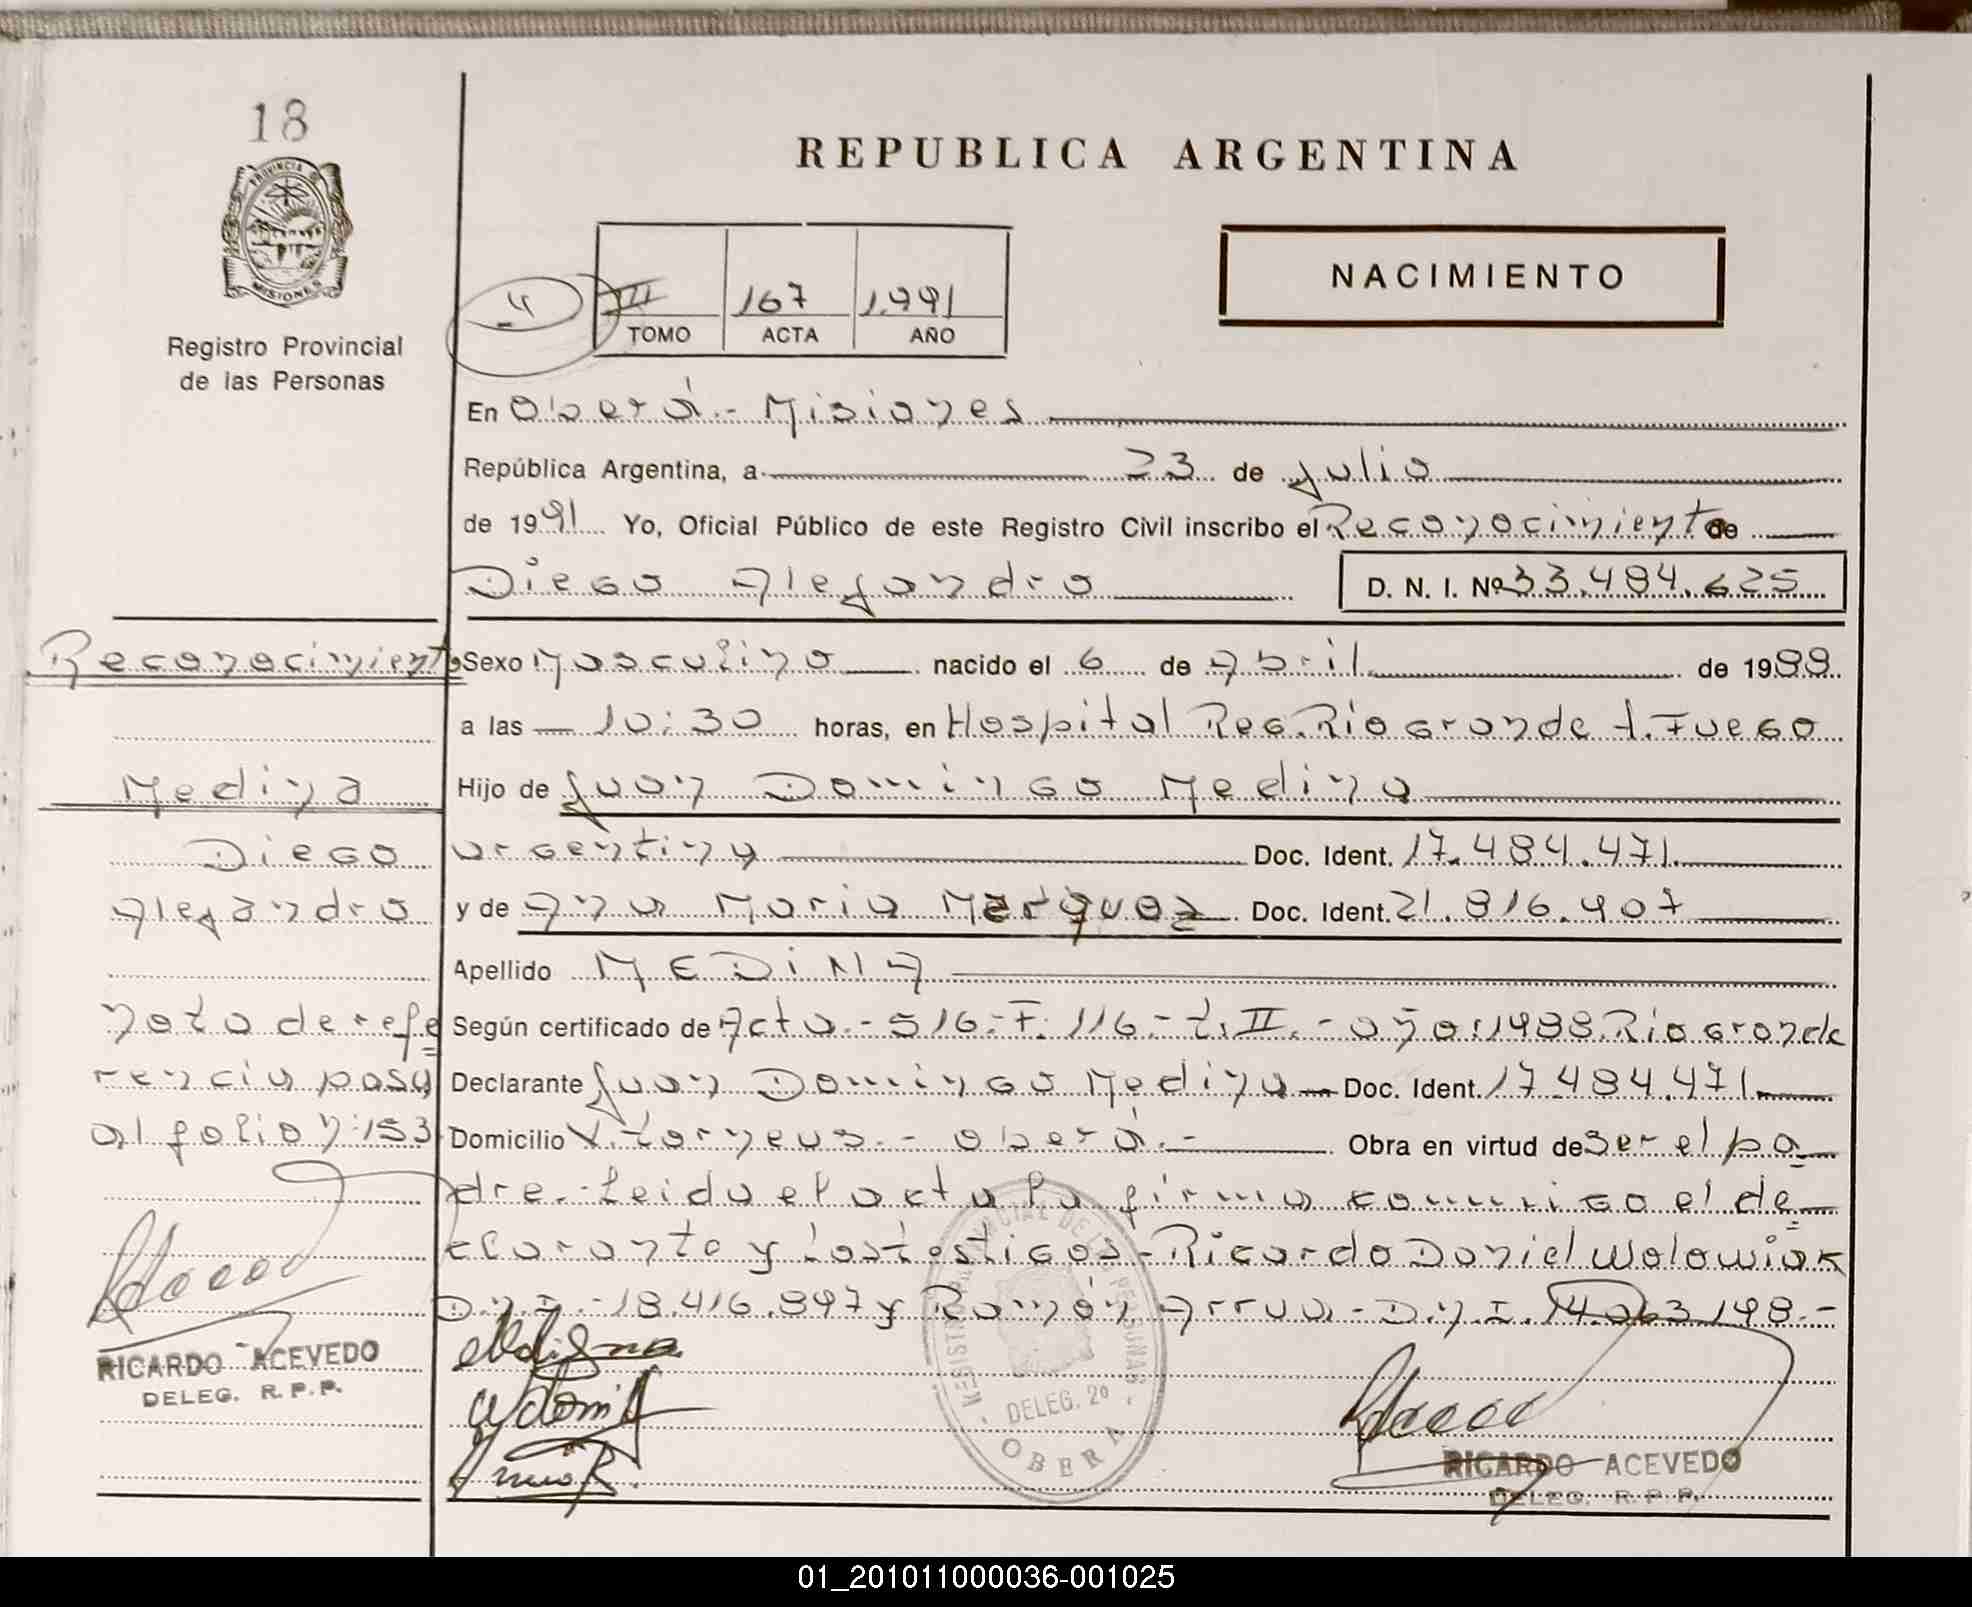 18
REPUBLICA ARGENTINA
PROVINCIA DE
MISIONES
Registro Provincial
de las Personas
NACIMIENTO
III 167 1.991
TOMO ACTA AÑO
En Oberá.- Misiones
República Argentina, a 23 de Julio
de 1991 Yo, Oficial Público de este Registro Civil inscribo el Reconocimiento de
Diego Alejandro D. N. I. Nº 33.484.625
Reconocimiento
Medina
Diego
Alejandro
nota de refe
rencia pasa
al folio n: 153
RICARDO ACEVEDO
DELEG. R. P. P.
Sexo Masculino nacido el 6 de Abril de 1988
a las 10:30 horas, en Hospital Reg. Rio Grande t. Fuego
Hijo de Juan Domingo Medina
argentina Doc. Ident. 17.484.471
y de Ana Maria Marquez Doc. Ident. 21.816.907
Apellido MEDINA
Según certificado de Acta.- 516.- F. 116.- t. II.- año: 1988 Rio Grande
Declarante Juan Domingo Medina Doc. Ident. 17.484.471
Domicilio V. torneus.- Oberá.- Obra en virtud de ser el pa
dre.- Leida el acta la firma conmigo el de
clarante y los testigos - Ricardo Daniel Wolowiak
D.N.I.- 18.416.897 y Ramón Arrua - D.N.I. 14.063.198.-
REGISTRO PROVINCIAL DE LAS PERSONAS
DELEG. 2º
OBERA
RICARDO ACEVEDO
DELEG. R. P. P.
01_201011000036-001025